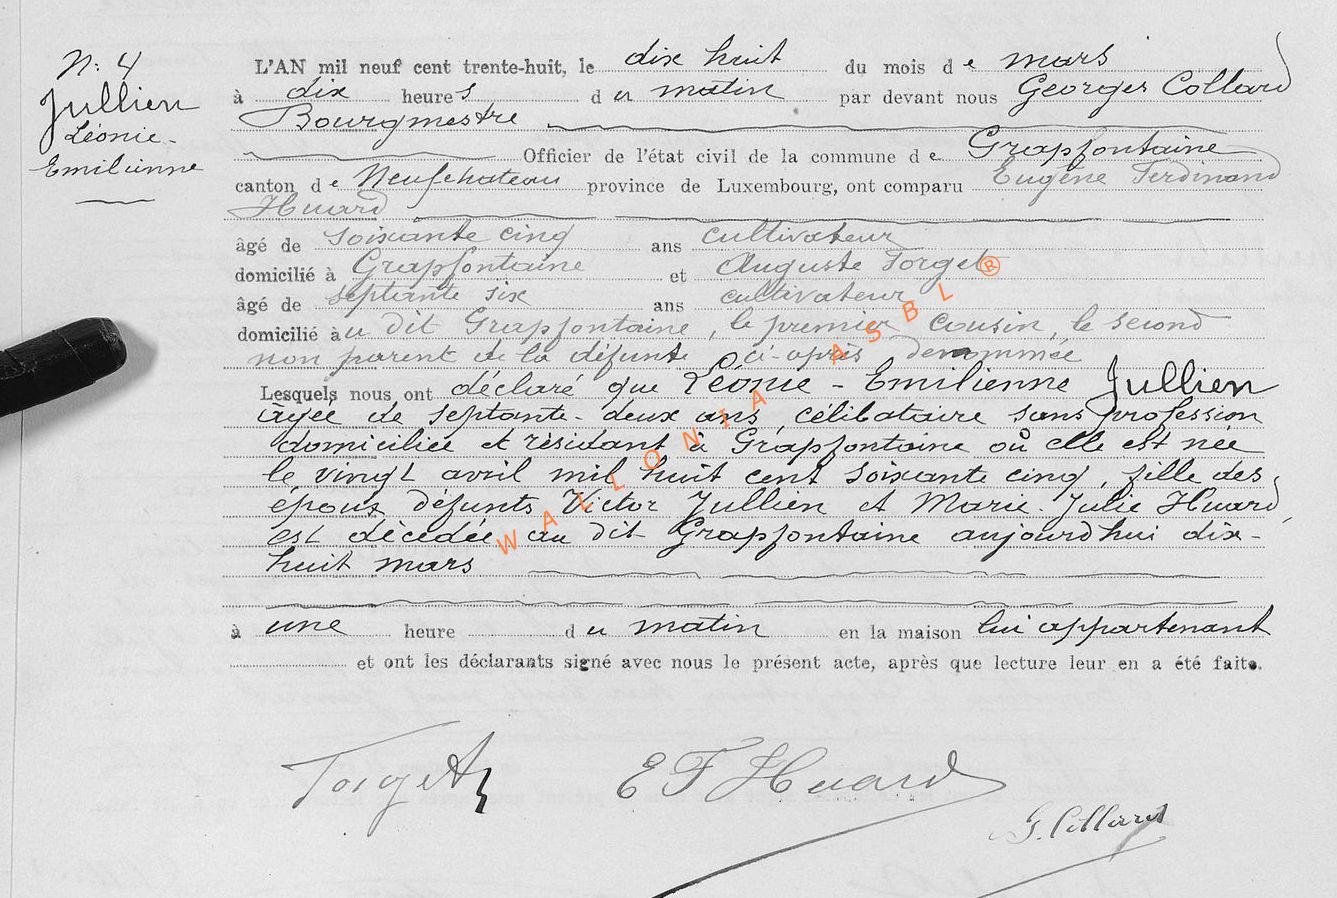 N: 4
Jullien
Léonie-
Emilienne
L'AN mil neuf cent trente-huit, le dix huit du mois de mars
à dix heures du matin par devant nous Georges Collard
Bourgmestre
Officier de l'état civil de la commune de Grapfontaine
canton de Neufchateau province de Luxembourg, ont comparu Eugène Ferdinand
Huard
âgé de soixante cinq ans cultivateur
domicilié à Grapfontaine et Auguste Torget
âgé de septante six ans cultivateur
domicilié àu dit Grapfontaine, le premier Cousin, le second
non parent de la défunte ci-après denommée
Lesquels nous ont déclaré que Léonie - Emilienne Jullien
âgée de septante-deux ans, célibataire sans profession
domiciliée et résidant à Grapfontaine où elle est née
le vingt avril mil huit cent soixante cinq, fille des
époux défunts Victor Jullien et Marie-Julie Huard,
est décédée au dit Grapfontaine aujourd'hui dix-
huit mars
à une heure du matin en la maison lui appartenant
et ont les déclarants signé avec nous le présent acte, après que lecture leur en a été faite.
Torget E F Huard
G. Collard
WALLONIA ASBL ®